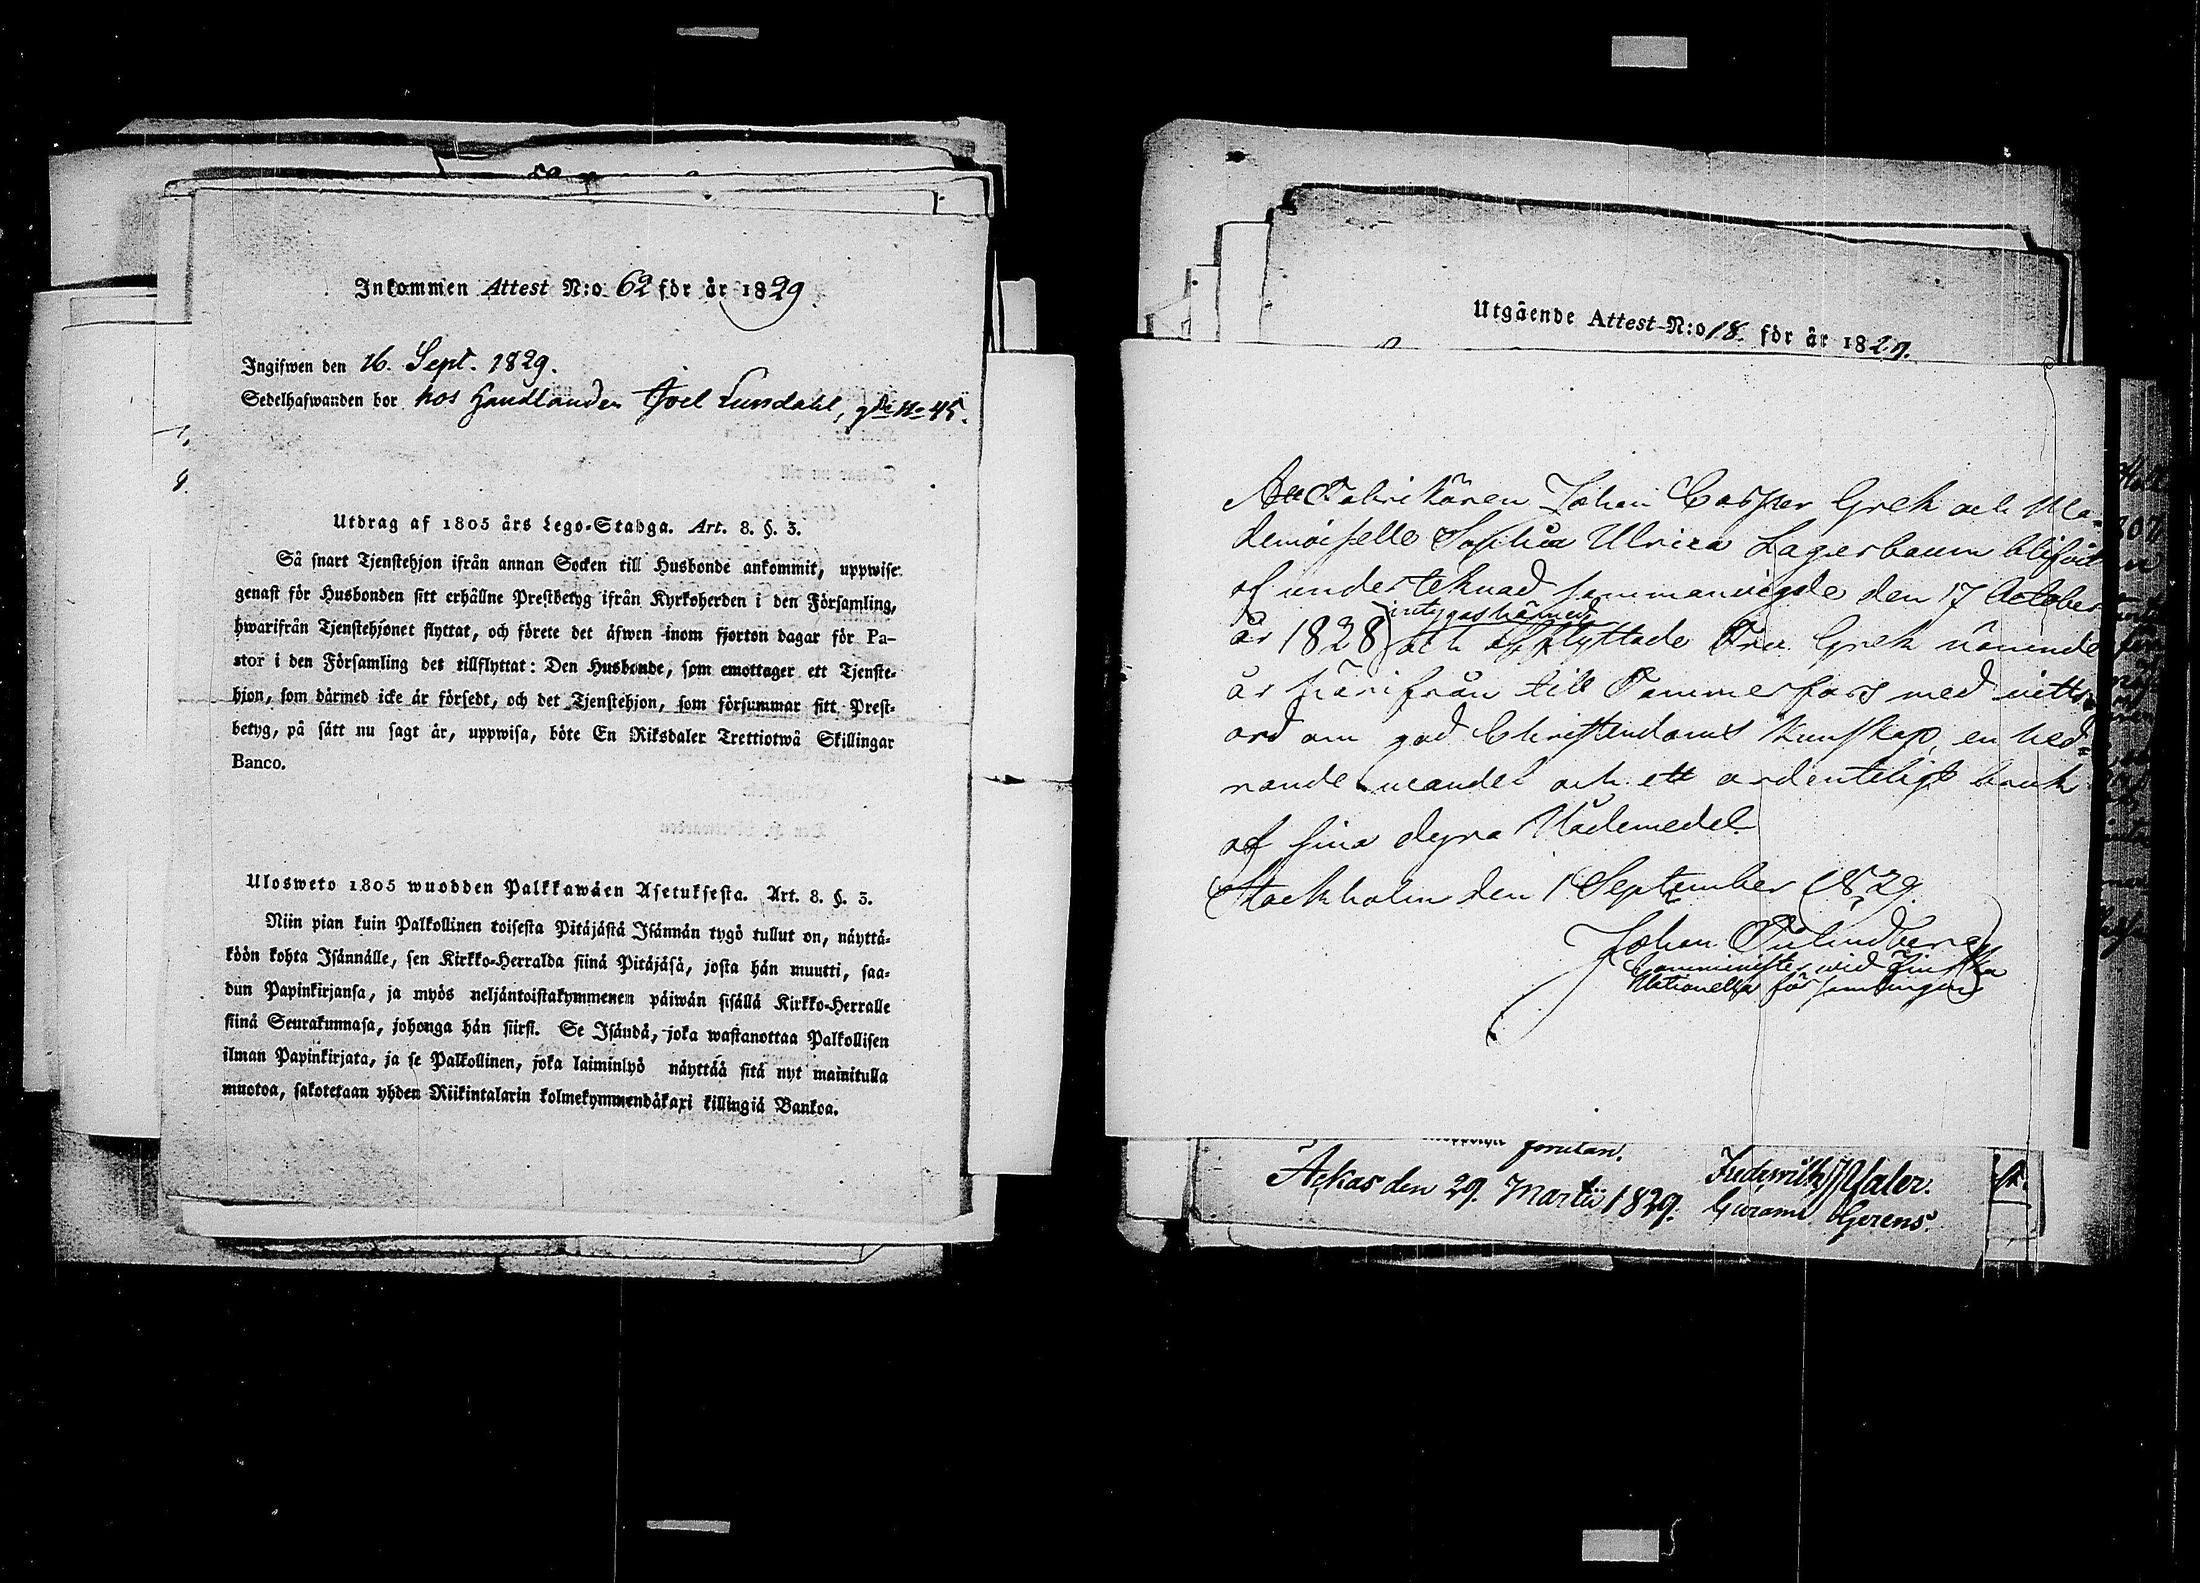 Inkommen Attest N:o 62 för år 1829
Ingifwen den 16. Sept. 1829.
Sedelhafwanden bor hos Handlanden Joel Lundahl, gde No 45.
Utdrag af 1805 års Lego-Stadga. Art. 8. §. 3.
Så snart Tjenstehjon ifrån annan Socken till Husbonde ankommit, uppwise
genast för Husbonden sitt erhållne Prestbetyg ifrån Kyrkoherden i den Församling,
hwarifrån Tjenstehjonet flyttat, och förete det äfwen inom fjorton dagar för Pa-
stor i den Församling det tillflyttat: Den Husbonde, som emottager ett Tjenste-
hjon, som därmed icke är försedt, och det Tjenstehjon, som försummar sitt Prest-
betyg, på sätt nu sagt är, uppwisa, böte En Riksdaler Trettiotwå Skillingar
Banco.
Ulosweto 1805 wuodden Palkkawäen Asetuksesta. Art. 8. §. 3.
Niin pian kuin Palkollinen toisesta Pitäjästä Isännän tygö tullut on, näyttä-
köön kohta Isännälle, sen Kirkko-Herralda siinä Pitäjäsä, josta hän muutti, saa-
dun Papinkirjansa, ja myös neljäntoistakymmenen päiwän sisällä Kirkko-Herralle
siinä Seurakunnasa, johonga hän siirst. Se Isändä, joka wastanottaa Palkollisen
ilman Papinkirjata, ja se Palkollinen, joka laiminlyö näyttää sitä nyt mainitulla
muotoa, sakotetaan yhden Riikintalarin kolmekymmendäkaxi killingiä Bankoa.
Utgående Attest N:o 18. för år 1829.
Att Fabrikören Johan Casper Grek och Ma-
demoiselle Sophia Ulrica Lagerbaum blifvit
af underteknad sammanvigde den 17 October
intygas härmed
år 1828 och afflyttade Fru Grek närende
år härifrån till Tammerfors med vitts-
ord om god Christendoms kunskap, en hed-
rande vandel och ett ordenteligt bruk
af sina dyra Nådemedel
Stockholm den 1 September 1829.
Johan
Comminister wid Finska
Nationella församlingen
förutan.
Ackas den 29. Martii 1829.
Curam Gerens.